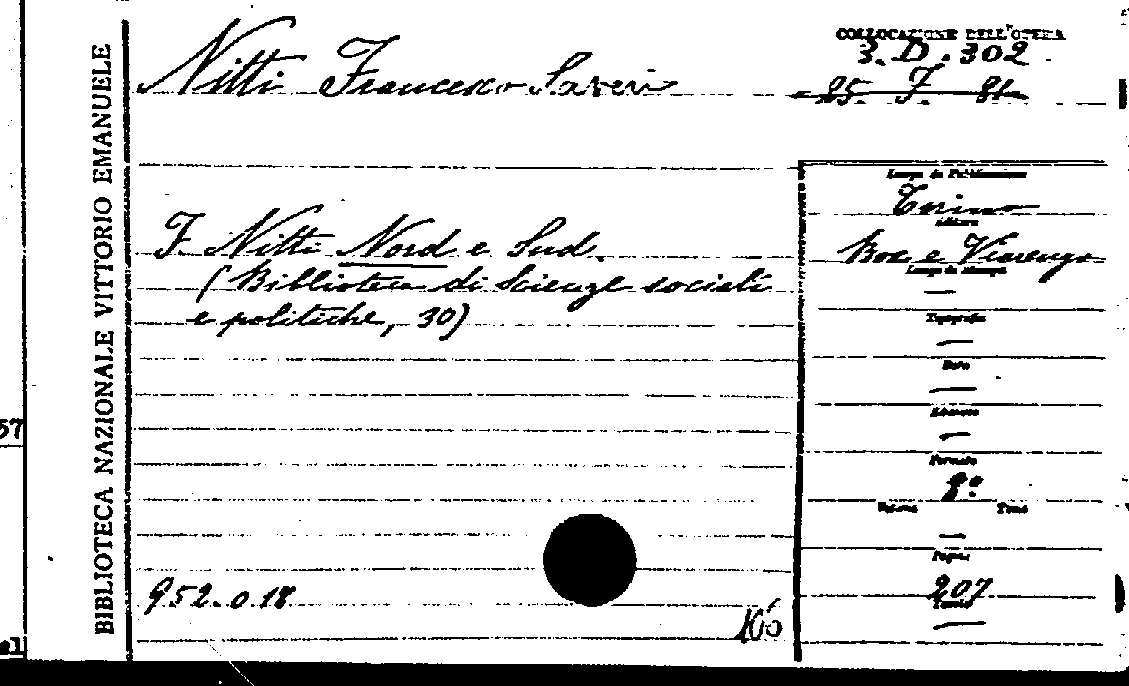 BIBLIOTECA NAZIONALE VITTORIO EMANUELE
Nitti Francesco Saveri
COLLOCAZIONE DELL'OPERA
3. D. 302
25. J. 81
F. Nitti Nord e Sud.
(Biblioteca di Scienze sociali
e politiche, 30)
952.0.18
Luogo di Pubblicazione
Torino
Editore
Roux e Viarengo
Luogo di stampa
—
Tipografia
—
Data
—
Edizione
—
Formato
8°
Volume Tomo
—
Pagine
207
Tavole
—
57
el